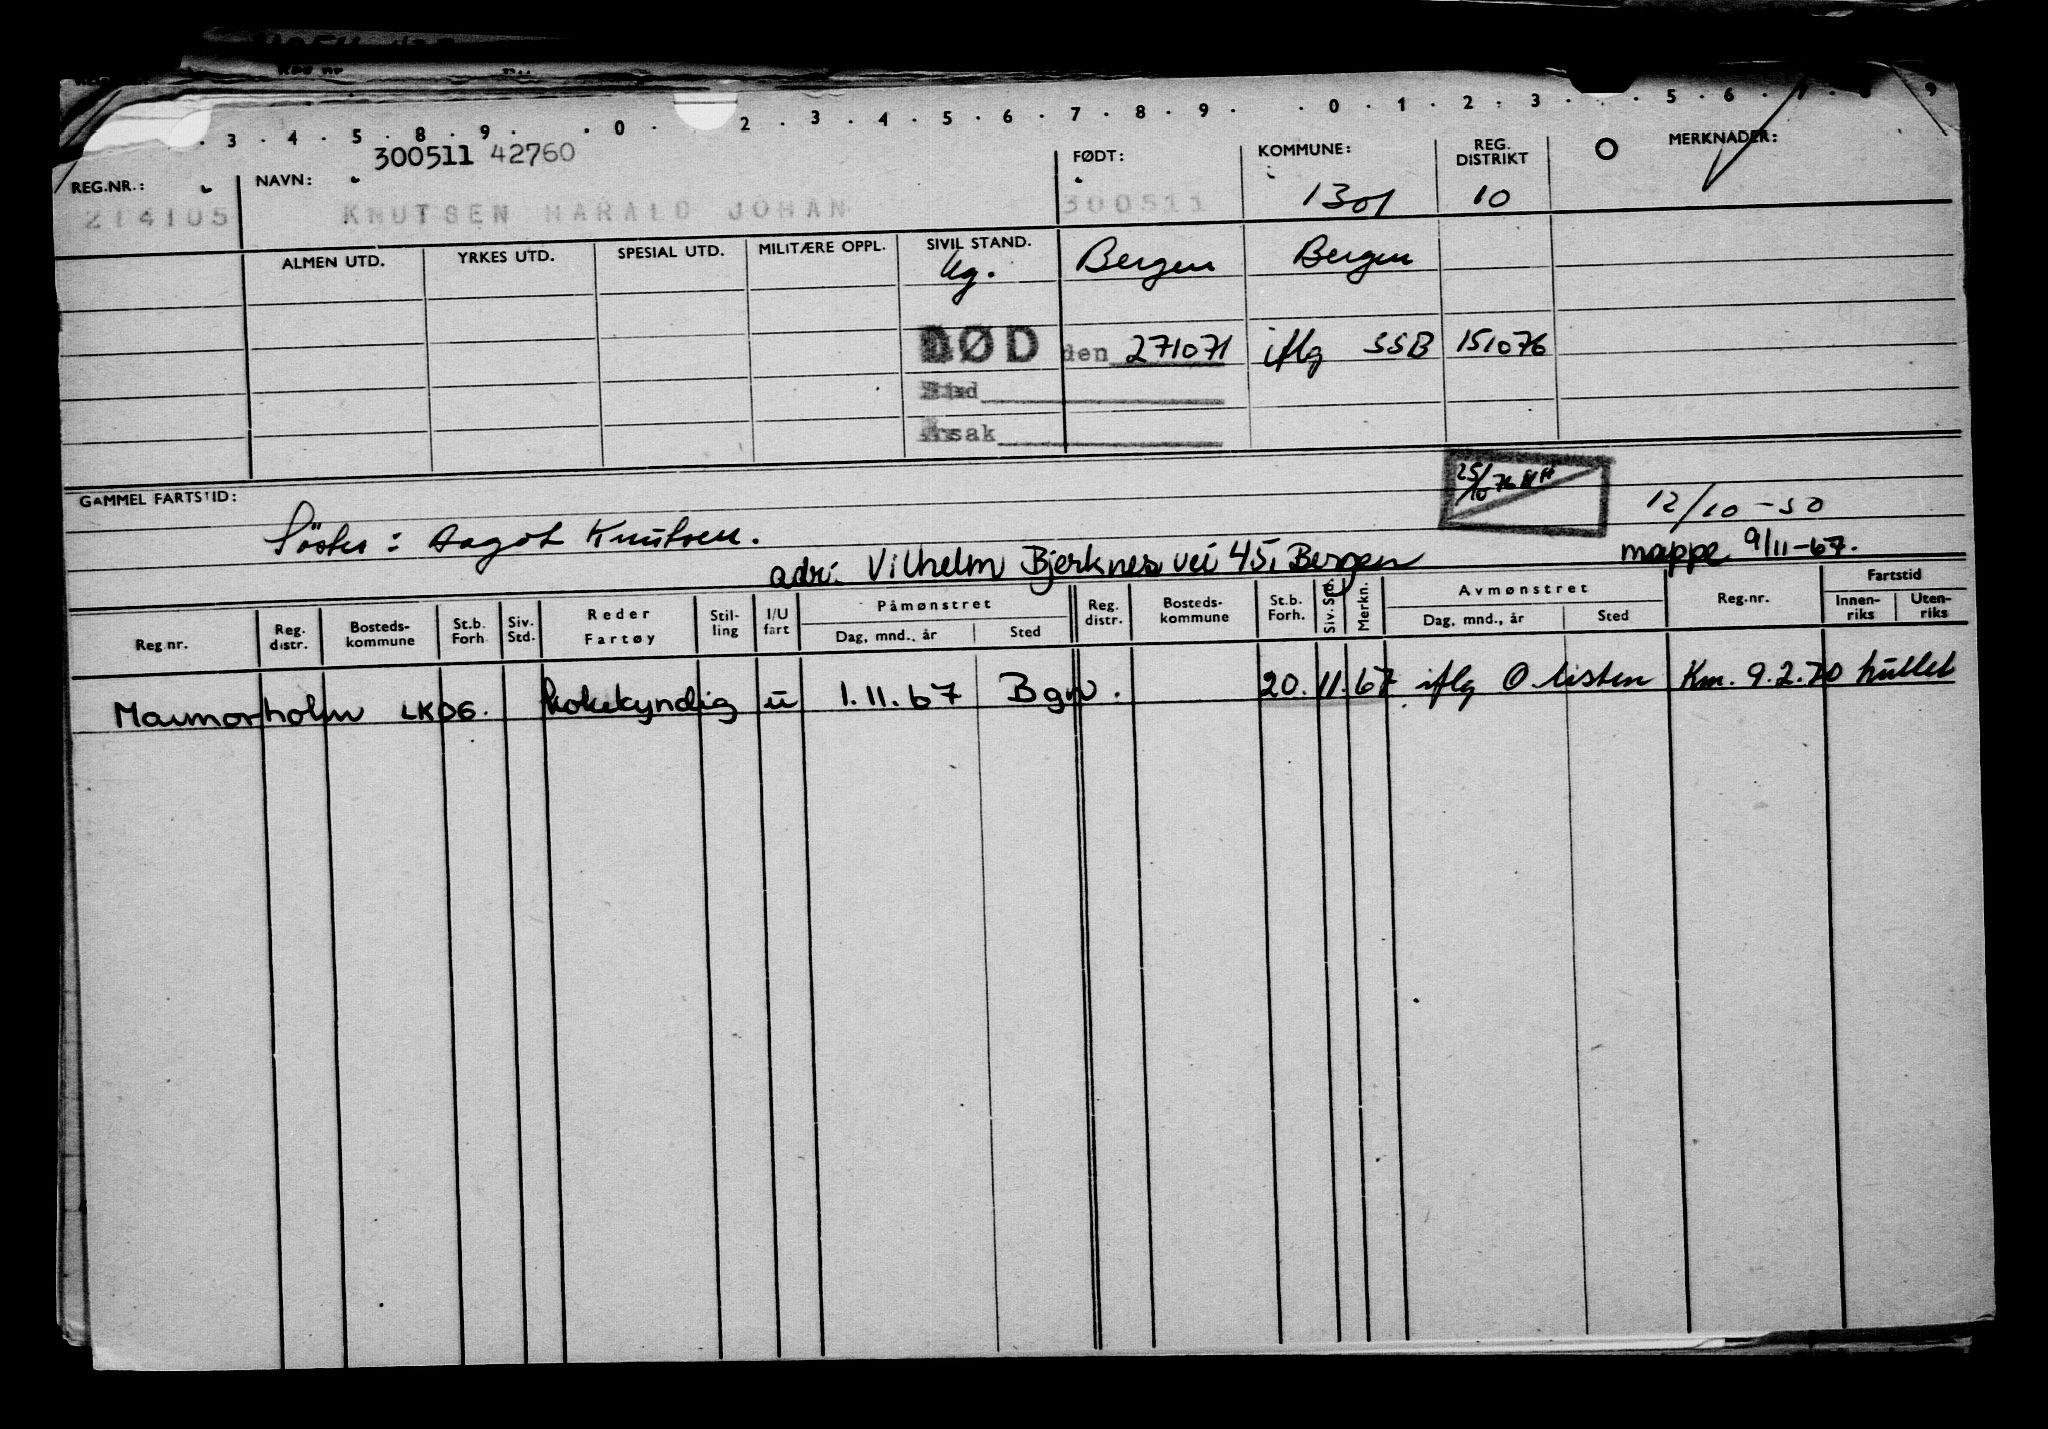 3 . 4 . 5 . 8 . 9 . . 0 . 2 . 3 . 4 . 5 . 6 . 7 . 8 . 9 . . 0 . 1 . 2 . 3 . . 5 . 6 . 7 . 8 . 9
300511 42760
REG.NR.: NAVN: FØDT: KOMMUNE: REG. DISTRIKT MERKNADER:
214105 KNUTSEN HARALD JOHAN 300511 1301 10
ALMEN UTD. YRKES UTD. SPESIAL UTD. MILITÆRE OPPL. SIVIL STAND.
Ug. Bergen Bergen
DØD den 271071 iflg SSB 151076
Sted
Årsak
25/10 76
GAMMEL FARTSTID:
12/10 - 50
Söster : Dagot Knutsen.
adr: Vilhelm Bjerknes vei 45, Bergen mappe 9/11-67.
Reg.nr. Reg. distr. Bosteds-kommune St.b. Forh. Siv. Std. Reder Fartøy Stil-ling I/U fart Påmønstret Dag, mnd., år Sted Reg. distr. Bosteds-kommune St.b. Forh. Siv. St. Merkn. Avmønstret Dag, mnd., år Sted Reg.nr. Fartstid Innen-riks Uten-riks
Marmorholm LKDG. kokekyndig u 1.11.67 Bgn. 20.11.67 iflg O listen Km. 9.2.70 hullet